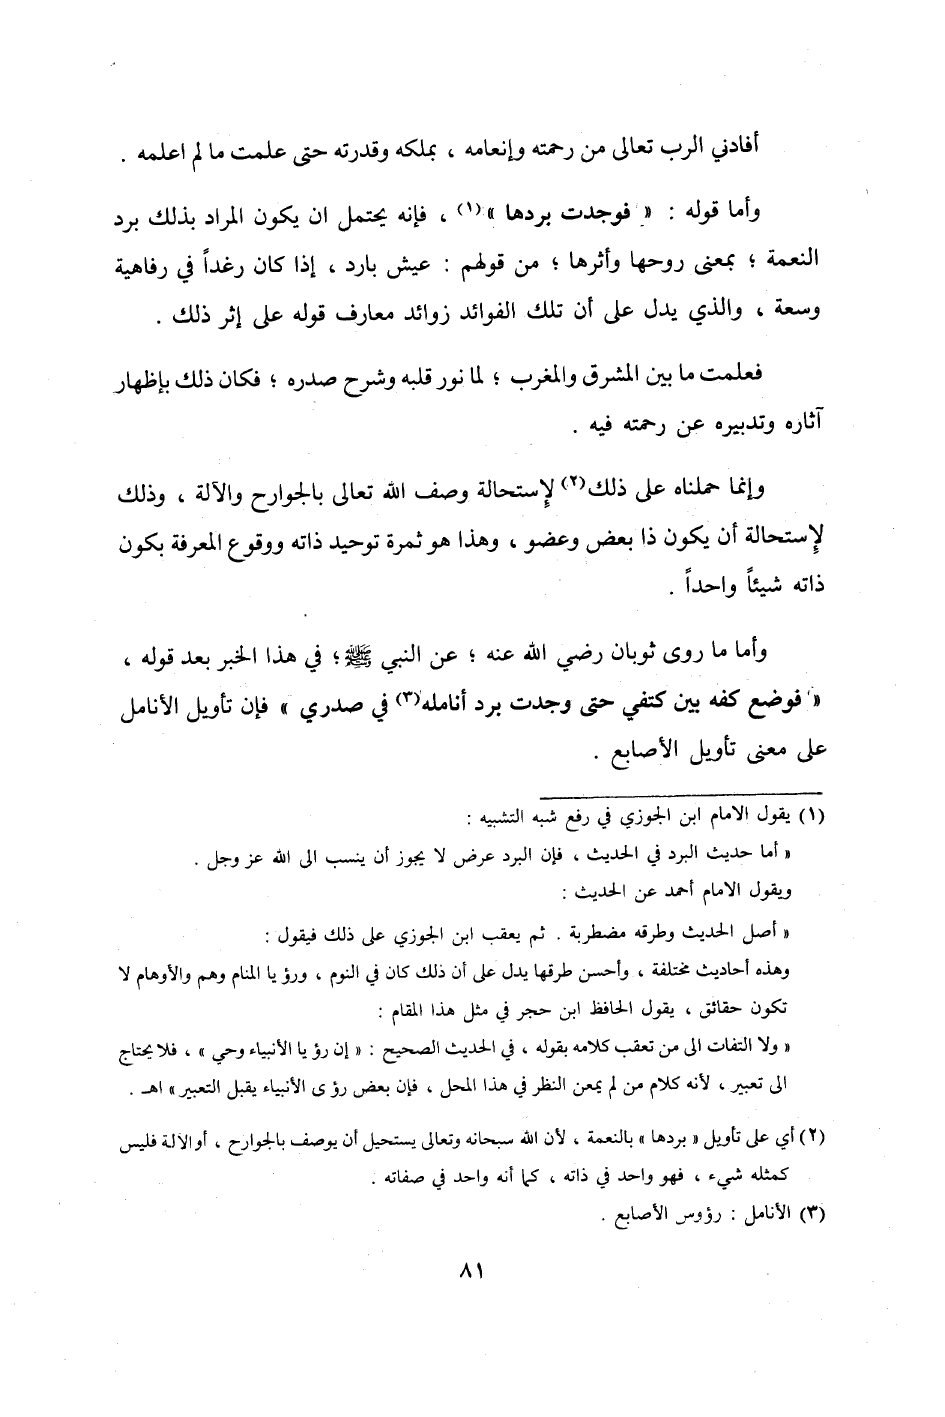 أفادني الرب تعالى من رحمته وإنعامه ، بملكه وقدرته حتى علمت ما لم اعلمه .
وأما قوله : « فوجدت بردها »(١) ، فإنه يحتمل ان يكون المراد بذلك برد
النعمة ؛ بمعنى روحها وأثرها ؛ من قولهم : عيش بارد ، إذا كان رغداً في رفاهية
وسعة ، والذي يدل على أن تلك الفوائد زوائد معارف قوله على إثر ذلك .
فعلمت ما بين المشرق والمغرب ؛ لما نور قلبه وشرح صدره ؛ فكان ذلك بإظهار
آثاره وتدبيره عن رحمته فيه .
وإنما حملناه على ذلك(٢) لإستحالة وصف الله تعالى بالجوارح والآلة ، وذلك
لإستحالة أن يكون ذا بعض وعضو ، وهذا هو ثمرة توحيد ذاته ووقوع المعرفة بكون
ذاته شيئاً واحداً .
وأما ما روى ثوبان رضي الله عنه ؛ عن النبي ﷺ ؛ في هذا الخبر بعد قوله ،
« فوضع كفه بين كتفي حتى وجدت برد أنامله(٣) في صدري » فإن تأويل الأنامل
على معنى تأويل الأصابع .
(١) يقول الامام ابن الجوزي في رفع شبه التشبيه :
« أما حديث البرد في الحديث ، فإن البرد عرض لا يجوز أن ينسب الى الله عز وجل .
ويقول الامام أحمد عن الحديث :
« أصل الحديث وطرقه مضطربة . ثم يعقب ابن الجوزي على ذلك فيقول :
وهذه أحاديث مختلفة ، وأحسن طرقها يدل على أن ذلك كان في النوم ، ورؤيا المنام وهم والأوهام لا
تكون حقائق ، يقول الحافظ ابن حجر في مثل هذا المقام :
« ولا التفات الى من تعقب كلامه بقوله ، في الحديث الصحيح : « إن رؤيا الأنبياء وحي » ، فلا يحتاج
الى تعبير ، لأنه كلام من لم يمعن النظر في هذا المحل ، فإن بعض رؤى الأنبياء يقبل التعبير » اهـ .
(٢) أي على تأويل « بردها » بالنعمة ، لأن الله سبحانه وتعالى يستحيل أن يوصف بالجوارح ، أو الآلة فليس
كمثله شيء ، فهو واحد في ذاته ، كما أنه واحد في صفاته .
(٣) الأنامل : رؤوس الأصابع .
٨١